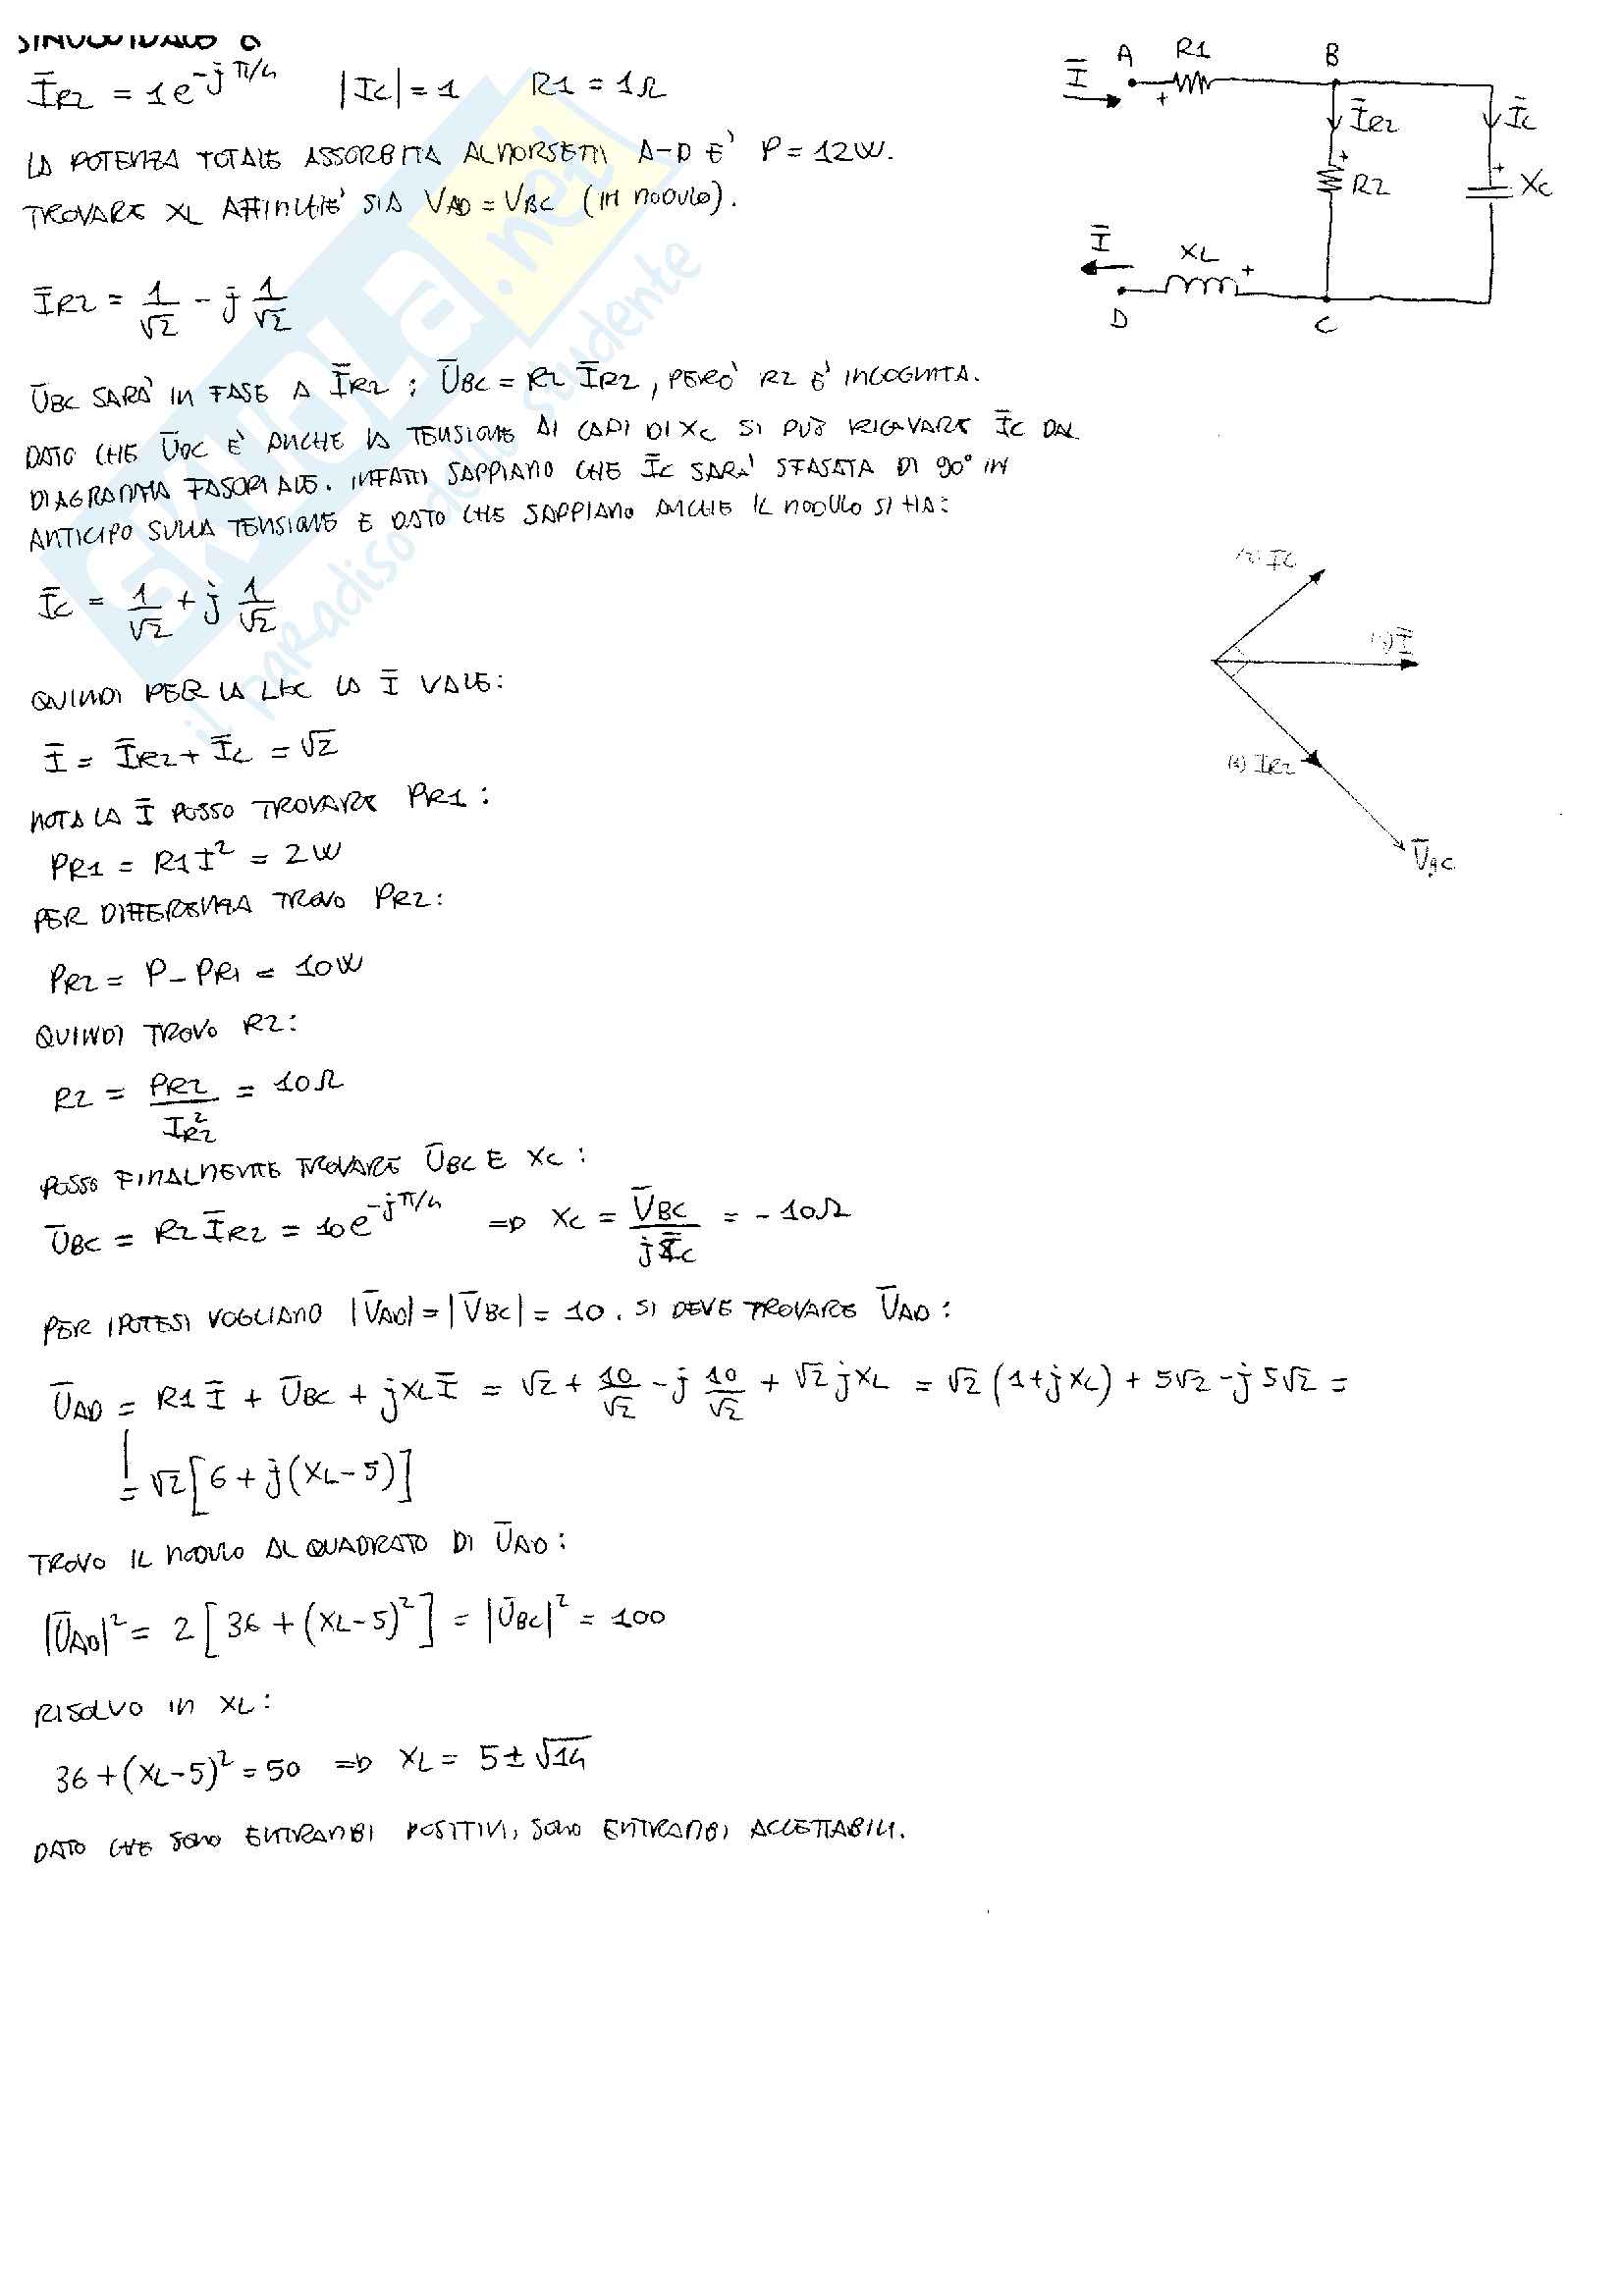 SINUSOIDALE 6
ĪR2 = 1e^-jπ/4 |IC| = 1 R1 = 1Ω
LA POTENZA TOTALE ASSORBITA AI MORSETTI A-D E' P = 12W.
TROVARE XL AFFINCHE' SIA VAD = VBC (IN MODULO).
ĪR2 = 1/√2 - j 1/√2
ŪBC SARA' IN FASE A ĪR2 ; ŪBC = R2 ĪR2, PERO' R2 E' INCOGNITA.
DATO CHE ŪBC E' ANCHE LA TENSIONE AI CAPI DI XC SI PUO' RICAVARE ĪC DAL
DIAGRAMMA FASORIALE. INFATTI SAPPIAMO CHE ĪC SARA' SFASATA DI 90° IN
ANTICIPO SULLA TENSIONE E DATO CHE SAPPIAMO ANCHE IL MODULO SI HA:
ĪC = 1/√2 + j 1/√2
QUINDI PER LA LKC LA Ī VALE:
Ī = ĪR2 + ĪC = √2
NOTA LA Ī POSSO TROVARE PR1:
PR1 = R1 I² = 2W
PER DIFFERENZA TROVO PR2:
PR2 = P - PR1 = 10W
QUINDI TROVO R2:
R2 = PR2/IR2² = 10Ω
POSSO FINALMENTE TROVARE ŪBC E XC:
ŪBC = R2 ĪR2 = 10e^-jπ/4 => XC = V̄BC/jĪC = -10Ω
PER IPOTESI VOGLIAMO |ŪAD| = |V̄BC| = 10. SI DEVE TROVARE ŪAD:
ŪAD = R1 Ī + ŪBC + jXL Ī = √2 + 10/√2 - j 10/√2 + √2 jXL = √2 (1+jXL) + 5√2 - j5√2 =
= √2[6 + j(XL-5)]
TROVO IL MODULO AL QUADRATO DI ŪAD:
|ŪAD|² = 2[36 + (XL-5)²] = |ŪBC|² = 100
RISOLVO IN XL:
36 + (XL-5)² = 50 => XL = 5 ± √14
DATO CHE SONO ENTRAMBI POSITIVI, SONO ENTRAMBI ACCETTABILI.
A R1 B
Ī + ĪR2 ĪC
+ R2 + XC
Ī XL +
D C
(2) IC
Ī
IR2
ŪBC
SKUOLA.net
il paradiso dello studente